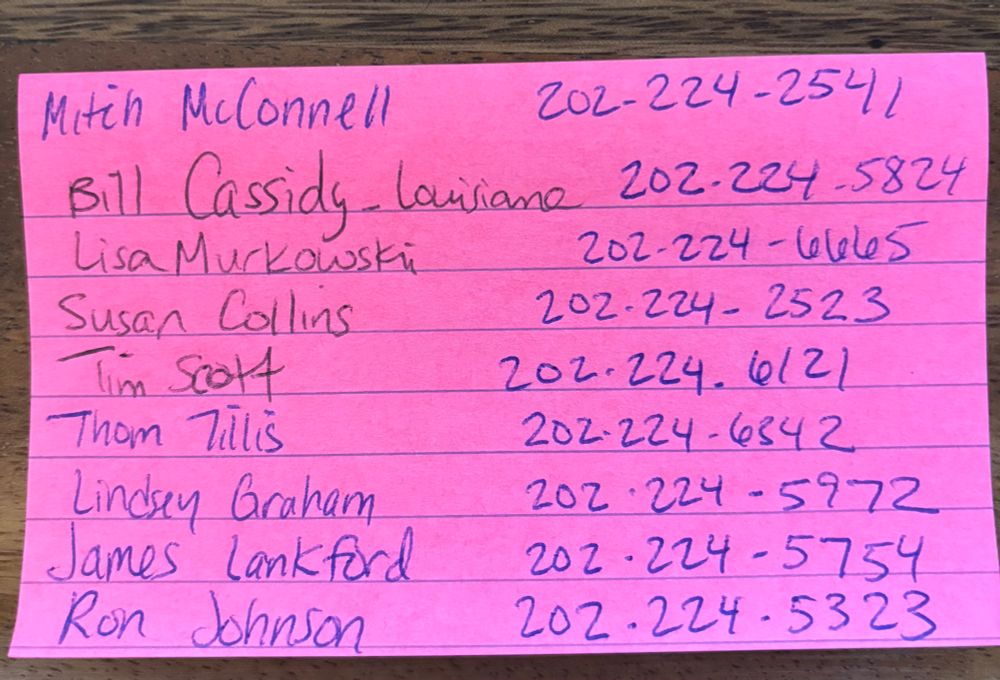 Mitch McConnell 202-224-2541
Bill Cassidy - Louisiana 202.224-5824
Lisa Murkowski 202-224-6665
Susan Collins 202.224-2523
Tim Scott 202.224.6121
Thom Tillis 202.224-6342
Lindsey Graham 202.224-5972
James Lankford 202.224-5754
Ron Johnson 202.224.5323